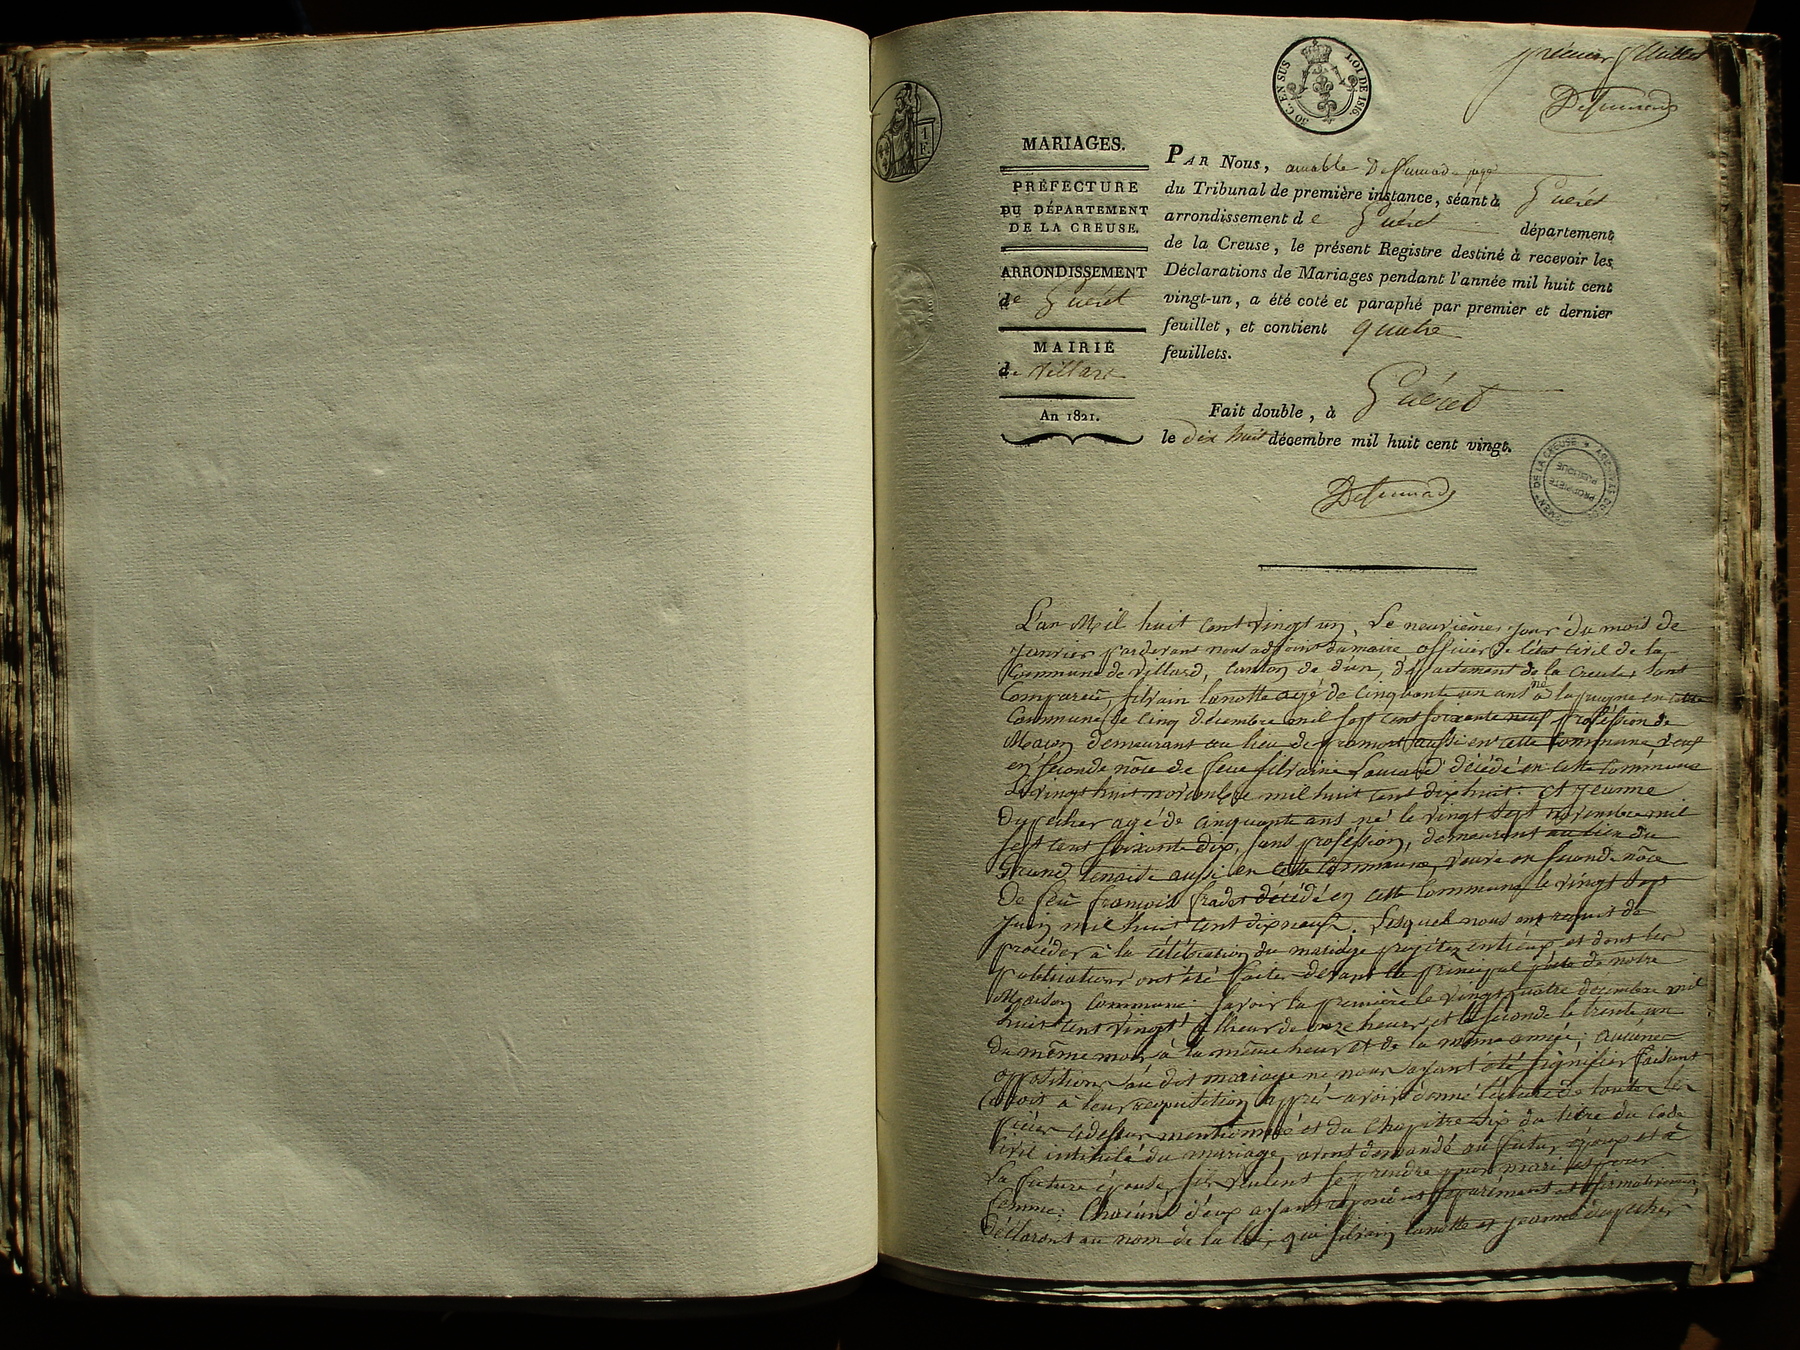 premier feuillet
30 C. EN SUS LOI DE 1816.
1 F.
MARIAGES.
PRÉFECTURE
DU DÉPARTEMENT
DE LA CREUSE.
ARRONDISSEMENT
de Guéret
MAIRIE
de villard
An 1821.
PAR Nous, amable juge
du Tribunal de première instance, séant à Guéret
arrondissement de Guéret département
de la Creuse, le présent Registre destiné à recevoir les
Déclarations de Mariages pendant l'année mil huit cent
vingt-un, a été coté et paraphé par premier et dernier
feuillet, et contient quatre
feuillets.
Fait double, à Guéret
le dix huit décembre mil huit cent vingt.
ARCHIVES DU DÉPARTEMENT DE LA CREUSE
PROPRIÉTÉ
PUBLIQUE
L'an Mil huit cent vingt un, Le neuvième jour du mois de
janvier pardevant nous adjoint du maire officier de l'état civil de la
Commune de villard, canton de dun, département de la Creuse, sont
Comparu silvain lanotte agé de cinquante un ans né à la en cette
Commune le cinq décembre mil sept cent soixante neuf profession de
Maçon demeurant au lieu de aussi en cette Commune, veuf
en seconde nôce de feue silvaine décédé en cette Commune
Le vingt huit novembre mil huit cent dix huit. Et jeanne
Dupecher agé de cinquante ans né le vingt sept novembre mil
sept cent soixante dix, sans proféssion, demeurant au lieu du
Grand aussi en cette Commune, veuve en seconde nôce
De feu françois décédé en cette Commune le vingt sept
juin mil huit cent dix neuf. Lesquel nous ont requit de
procéder à la célébration du mariage projetez entr'eux et dont les
publications ont été faites devant la principal porte de notre
Maison Commune: savoir la première le vingt quatre décembre mil
huit cent vingt à l'heur de onze heures, et la seconde le trente un
du même mois à la même heur et de la même année; aucune
opposition au dit mariage ne nous ayant été signifier faisant
droit à leur requisition après avoir donné lecture de toutes les
pièces cidessus mentionnée et du Chapitre six du titre du Code
Civil intitulé du mariage, avons demandé au futur époux et à
La future épouse, s'ils veulent se prendre pour mari et pour
femme; Chacun d'eux ayant repondu separément et afirmativement
Déclarons au nom de la loi, que silvain lanotte et jeanne dupecher